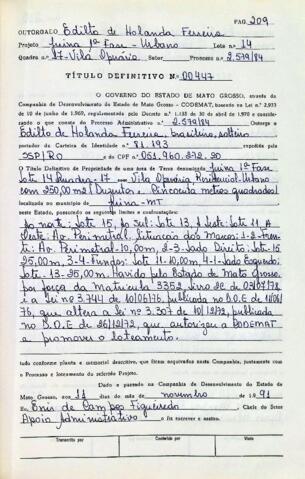 PAG. 209
OUTORGADO Edilto de Holanda Ferreira
Projeto Juina 1ª Fase - Urbano Lote n.º 14
Quadra 17-Vila Operária, Setor Processo n.º 2.579/84
TÍTULO DEFINITIVO N.º 00447
O GOVERNO DO ESTADO DE MATO GROSSO, através da
Companhia de Desenvolvimento do Estado de Mato Grosso - CODEMAT, baseado na Lei n.º 2.933
de 10 de junho de 1969, regulamentada pelo Decreto n.º 1.138 de 30 de abril de 1970 e consi-
derando o que consta do Processo Administrativo n.º 2.579/84 Outorga a
Edilto de Holanda Ferreira, brasileiro, solteiro
portador da Carteira de Identidade n.º 81.193 expedida pela
SSP/RO e do CPF n.º 051.960.272.20
O Título Definitivo de Propriedade de uma área de Terras denominada Juina 1ª Fase
Lote 14 Quadra-17 - Vila Operária Residencial-Urbano
com 250,00 m2 (Duzentos e Cincoenta metros quadrados)
localizado no município de Juina-MT
neste Estado, possuindo os seguintes limites e confrontações:
Ao norte: Lote 15, ao Sul: Lote 13, à Leste: Lote 11, A
Oeste: Av. Perimetral. Situação dos Marcos: 1-2-Frente:
Av. Perimetral-10,00m, 2-3-Lado Direito: Lote-15
25,00m, 3-4-Fundos: Lote 11-10,00m, 4-1-Lado Esquerdo:
Lote-13-25,00m. Havido pelo Estado de Mato Grosso
por força da Matricula 3352, livro 2 de 03/07/78
e a Lei nº 3.744 de 10/06/76, publicada no D.O.E de
76, que altera a lei nº 3.307 de 10/12/72, publicada
no D.O.E de 26/12/72, que autorizou a CODEMAT
a promover o loteamento.
tudo conforme planta e memorial descritivo, que ficam arquivados nesta Companhia, juntamente com
o Processo e loteamento do referido Projeto.
Dado e passado na Companhia de Desenvolvimento do Estado de
Mato Grosso, aos 11 dias do mês de novembro de 1.991
Eu, Enis de Campos Figueiredo Chefe do Setor
Apoio Administrativo o fiz escrever e assino.
Transcrito por Conferido por Visto